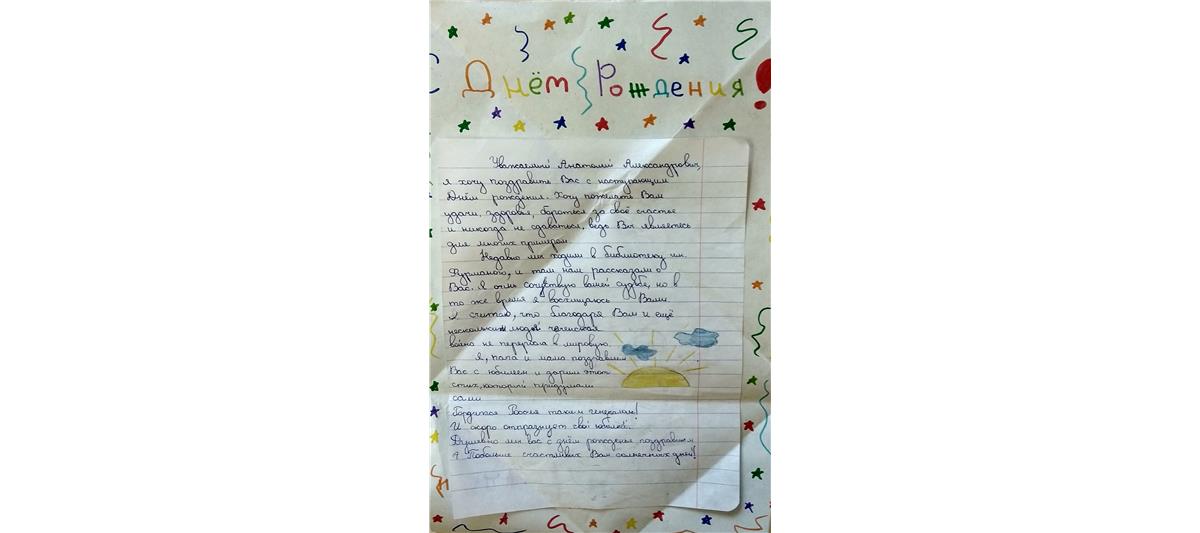 С Днём Рождения!
Уважаемый Анатолий Александрович,
я хочу поздравить Вас с наступающим
Днём рождения. Хочу пожелать Вам
удачи, здоровья, бороться за своё счастье
и никогда не сдаваться, ведь Вы являетесь
для многих примером.
Недавно мы ходили в библиотеку им.
и там нам рассказали о
Вас. Я очень сочуствую вашей судьбе, но в
то же время я восхищаюсь Вами.
Я считаю, что благодаря Вам и ещё
нескольким людей чеченская
война не переросла в мировую.
Я, папа и мама поздравляем
Вас с юбилеем и дарим этот
стих, который придумали
сами
Гордится Россия таким генералом!
И скоро отпразнует свой юбилей.
Душевно мы вас с днём рожденья поздравляем
Побольше счастливых Вам солнечных дней!